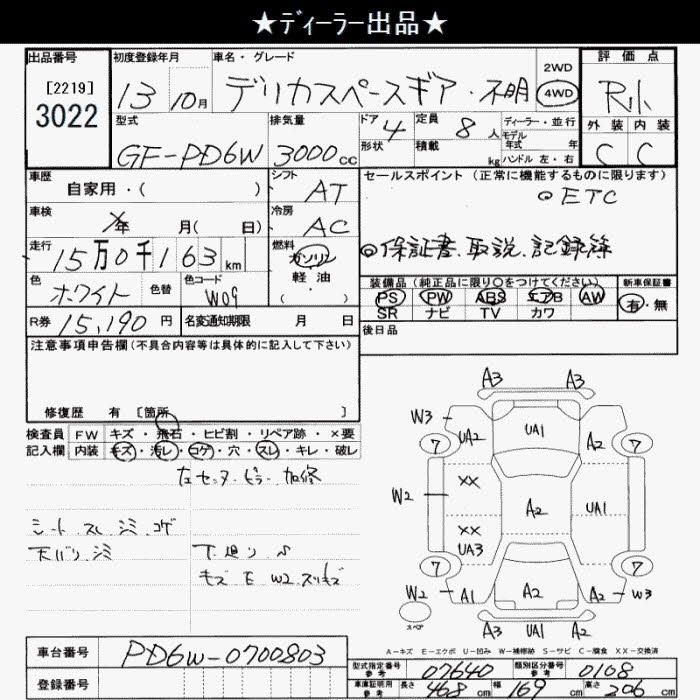 ★ディーラー出品★
出品番号
[2219]
3022
初度登録年月
13 10月
車名・グレード
デリカスペースギア・不明
2WD
4WD
評価点
R小
外装 内装
C C
型式
GF-PD6W
排気量
3000cc
ドア 4
形状
定員 8人
積載 kg
ディーラー・並行
モデル
年式 年
ハンドル 左・右
車歴
自家用・( )
シフト
AT
セールスポイント(正常に機能するものに限ります)
◎ETC
◎保証書、取説、記録簿
車検
年 月( 日)
冷房
AC
走行
15万0千163km
燃料
ガソリン
軽油
( ・ )
色
ホワイト
色替
色コード
W09
装備品(純正品に限り○をつけてください)
PS PW ABS エアB AW
SR ナビ TV カワ
新車保証書
有・無
R券 15,190円
名変通知期限 月 日
後日品
注意事項申告欄(不具合内容等は具体的に記入して下さい)
修復歴 有 [箇所 ]
検査員
記入欄
FW キズ・飛石・ヒビ割・リペア跡・×要
内装 キズ・汚レ・コゲ・穴・スレ・キレ・破レ
左センターピラー 加修
シート スレ シミ コゲ
天バリ シミ
下廻り
キズ E W2 スリキズ
A3 A3
W3 UA2 UA1 A2
7 7
XX
W2 A2 UA1
XX
UA3
7 7
W2 A1 A2 A2 W3
スペア
A3 UA1 A2
A-キズ E-エクボ U-凹み W-補修跡 S-サビ C-腐食 XX-交換済
車台番号 PD6W-0700803
登録番号
型式指定番号
参考
07640
類別区分番号
参考
0108
車庫証明用
参考
長さ 468cm 幅 169cm 高さ 206cm